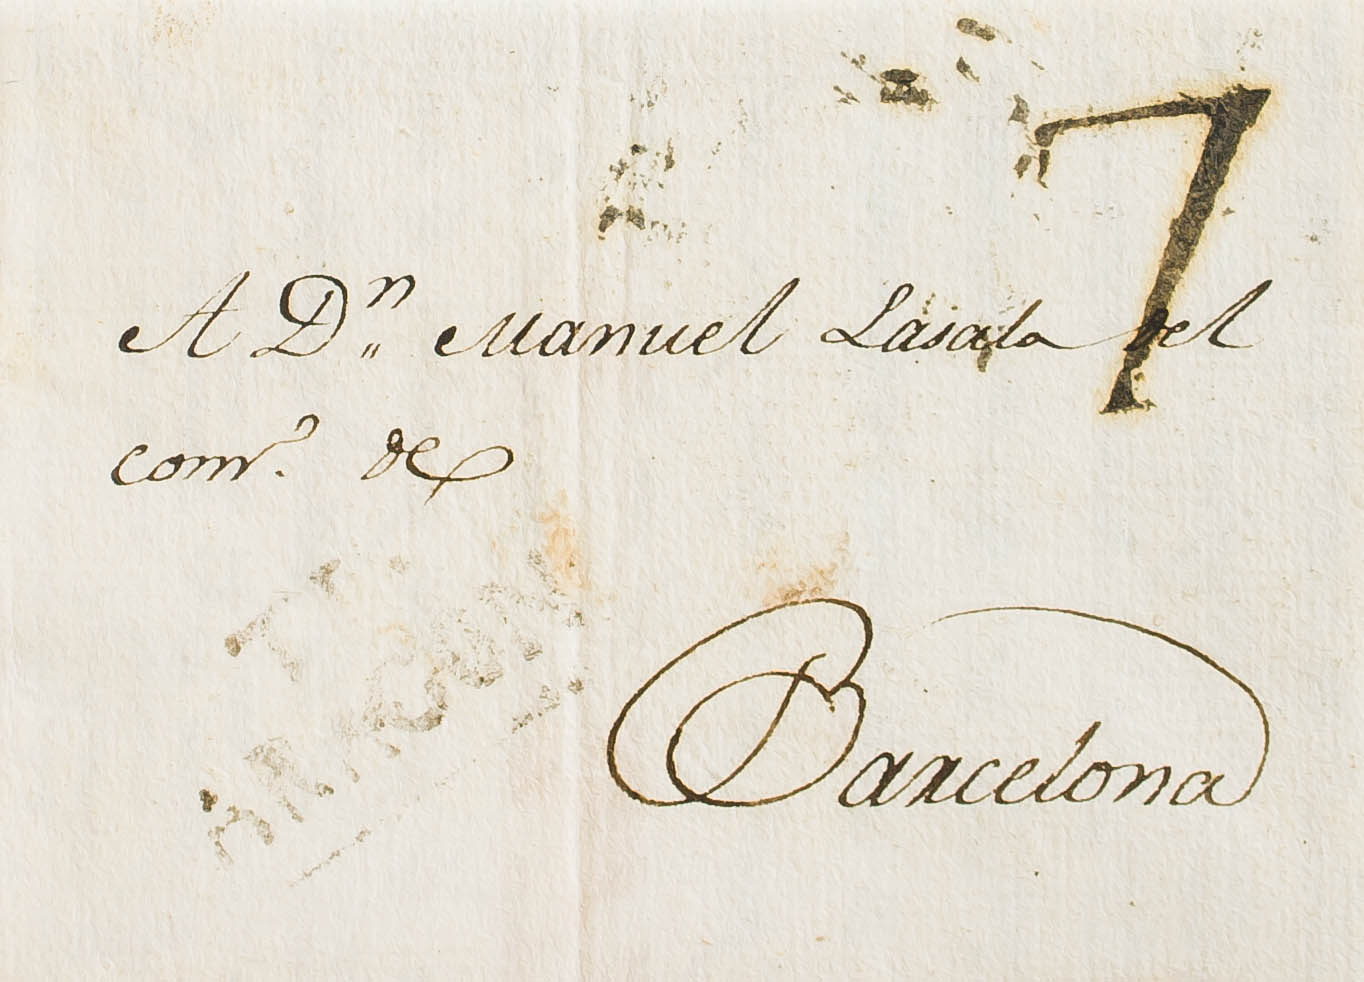 7
A Dⁿ„ Manuel Lasala del
comᵒ. de
ARAGON
Barcelona